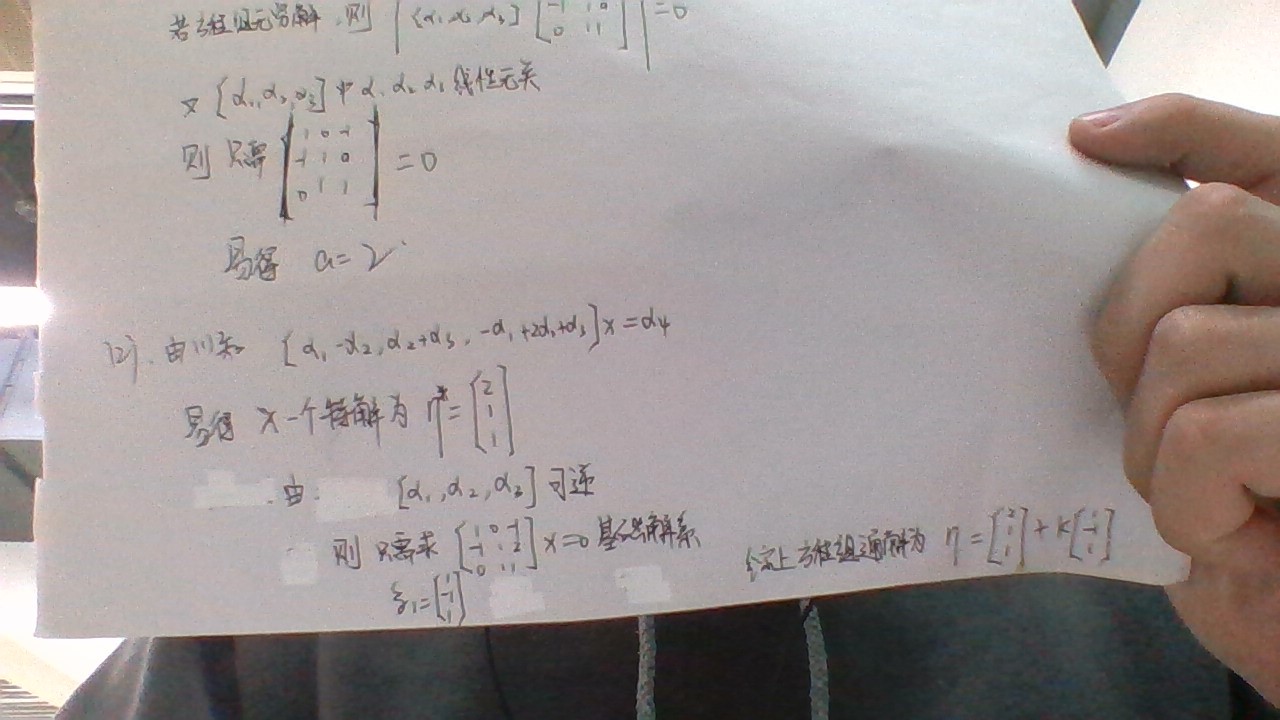 若方程组无穷解,则 | [α₁,α₂,α₃] [-1 1 0; 0 1 1] | =0
又 [α₁,α₂,α₃] 中 α₁ α₂ α₃ 线性无关
则 只需 | 1 0 -1; -1 1 a; 0 1 1 | = 0
易得 a=2
(2). 由(1)知 [α₁-α₂, α₂+α₃, -α₁+2α₂+α₃]x=α₄
易得 x一个特解为 η*= [2; 1; 1]
由 [α₁,α₂,α₃] 可逆
则 只需求 [1 0 -1; -1 1 2; 0 1 1] x=0 基础解系
ξ₁=[1; -1; 1]
综上方程组通解为 η=[2; 1; 1]+k[1; -1; 1]